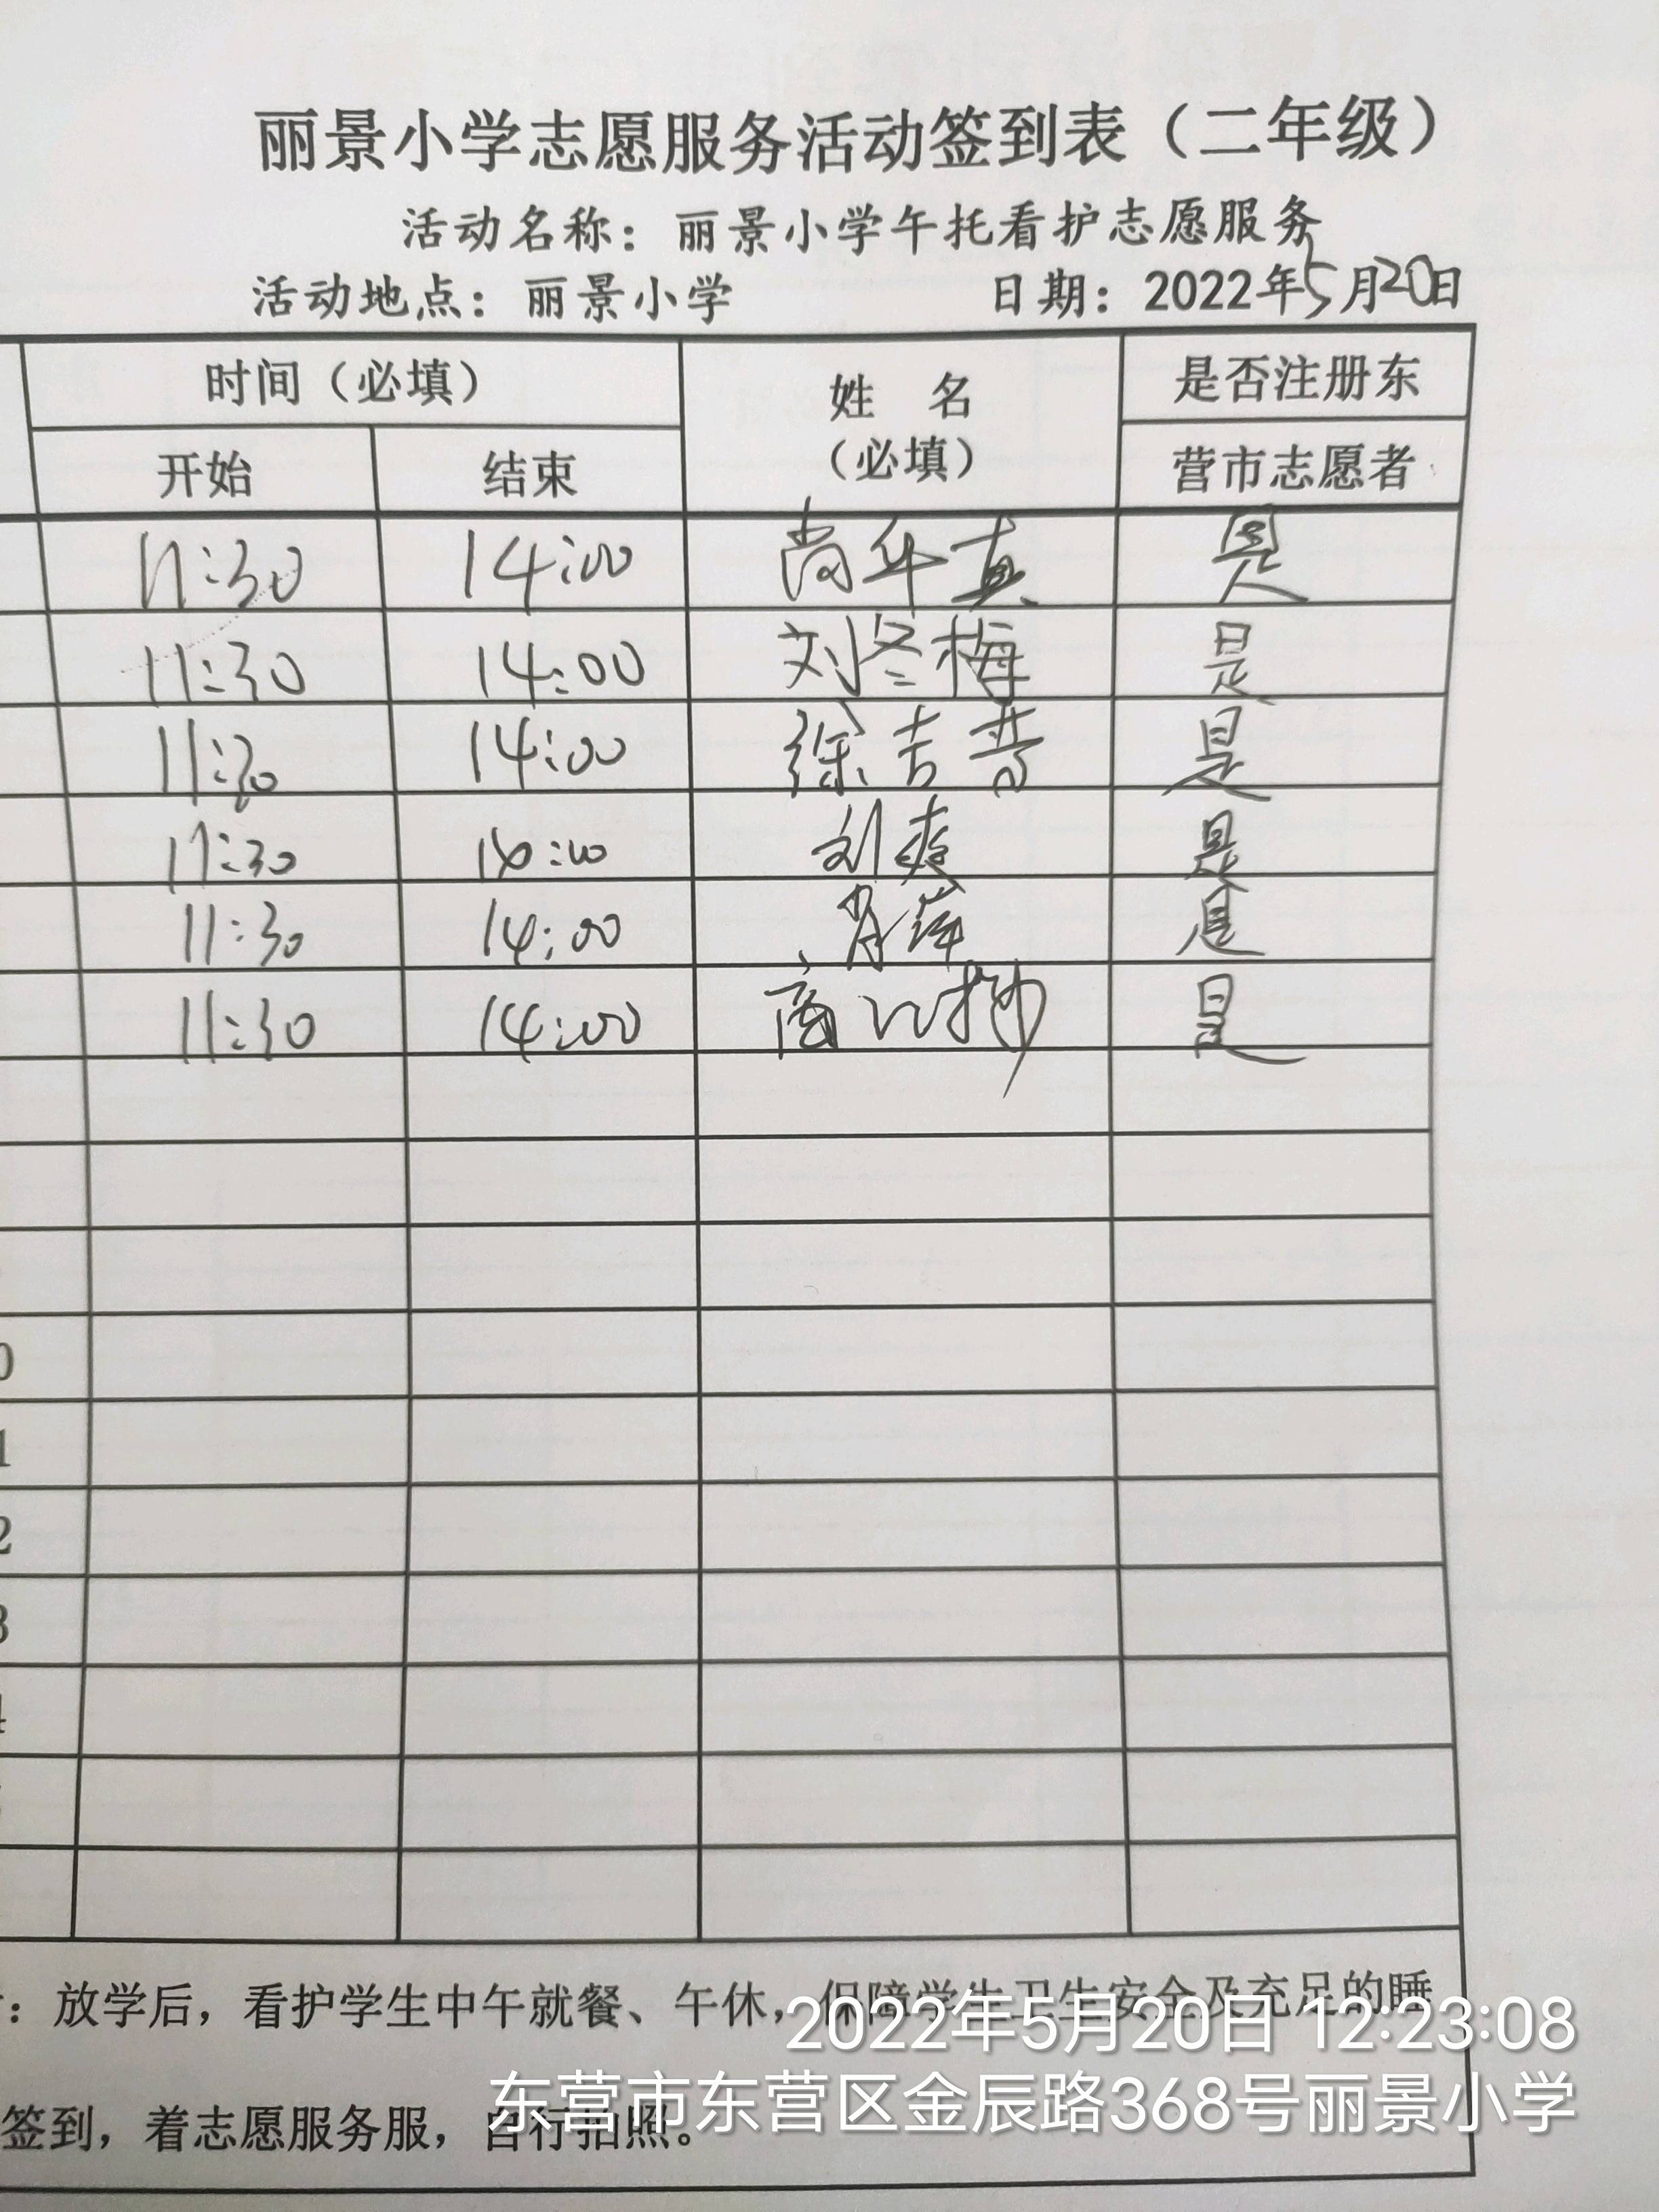 丽景小学志愿服务活动签到表（二年级）
活动名称：丽景小学午托看护志愿服务
活动地点：丽景小学 日期：2022年5月20日
时间（必填） 姓 名 是否注册东
开始 结束 （必填） 营市志愿者
11:30 14:00 是
11:30 14:00 刘冬梅 是
11:30 14:00 徐吉 是
11:30 刘爽 是
11:30 14:00 肖萍 是
11:30 14:00 是
0
1
2
3
4
：放学后，看护学生中午就餐、午休，保障学生卫生安全及充足的睡
2022年5月20日 12:23:08
东营市东营区金辰路368号丽景小学
签到，着志愿服务服，自行拍照。